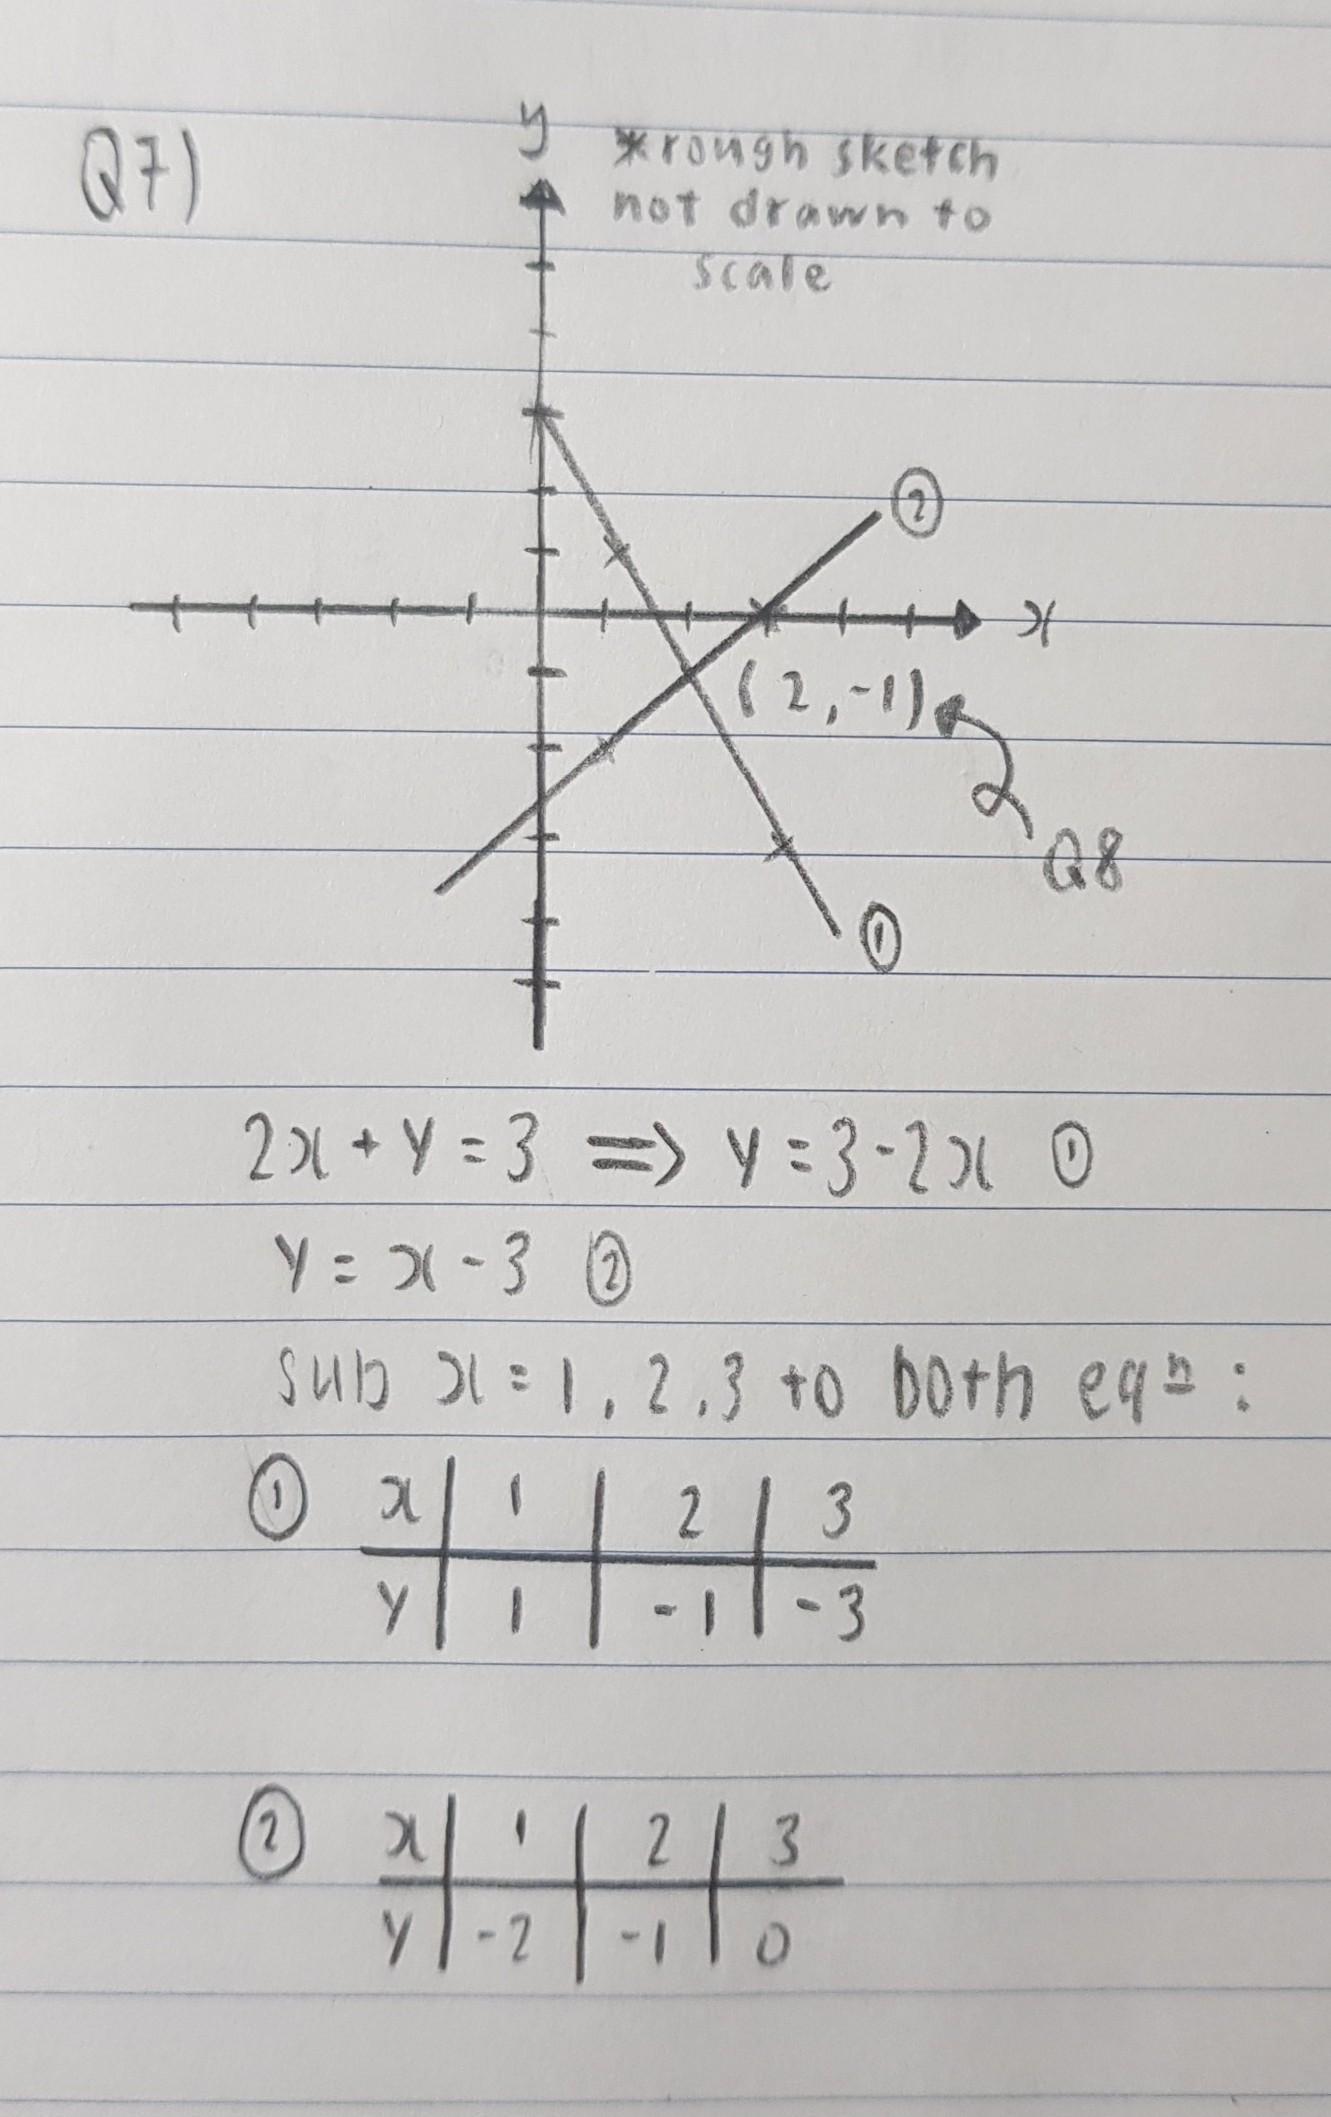 Q7)
y
*rough sketch
not drawn to
scale
②
x
(2,-1)
Q8
①
2x + y = 3 => y = 3 - 2x ①
y = x - 3 ②
sub x = 1, 2, 3 to both eqⁿ :
① x | 1 | 2 | 3
y | 1 | -1 | -3
② x | 1 | 2 | 3
y | -2 | -1 | 0